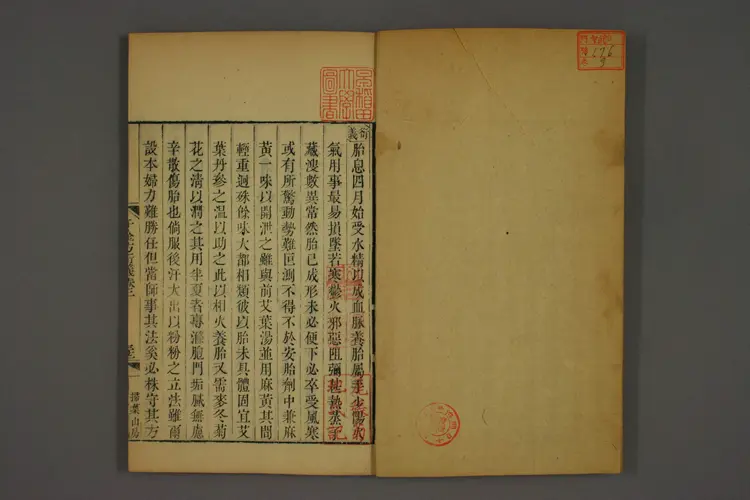 衍義
胎息四月始受水精以成血脉養胎屬手少陽火
氣用事最易損墜若寒鬱火邪惡阻彌
藏溲數異常然胎已成形未必便下必卒受風寒
或有所驚動勢難叵測不得不於安胎劑中兼麻
黃一味以開泄之雖與前艾葉湯並用麻黃其間
輕重迥殊餘味大都相類彼以胎未具體固宜艾
葉丹參之溫以助之此以相火養胎又需麥冬菊
花之清以潤之其用半夏者專滌膻門垢膩無慮
辛散傷胎也倘服後汗大出以粉粉之立法雖爾
設本婦力難勝任但當師事其法奚必株守其方
千金方衍義卷二
掃葉山房
早稻田大學圖書